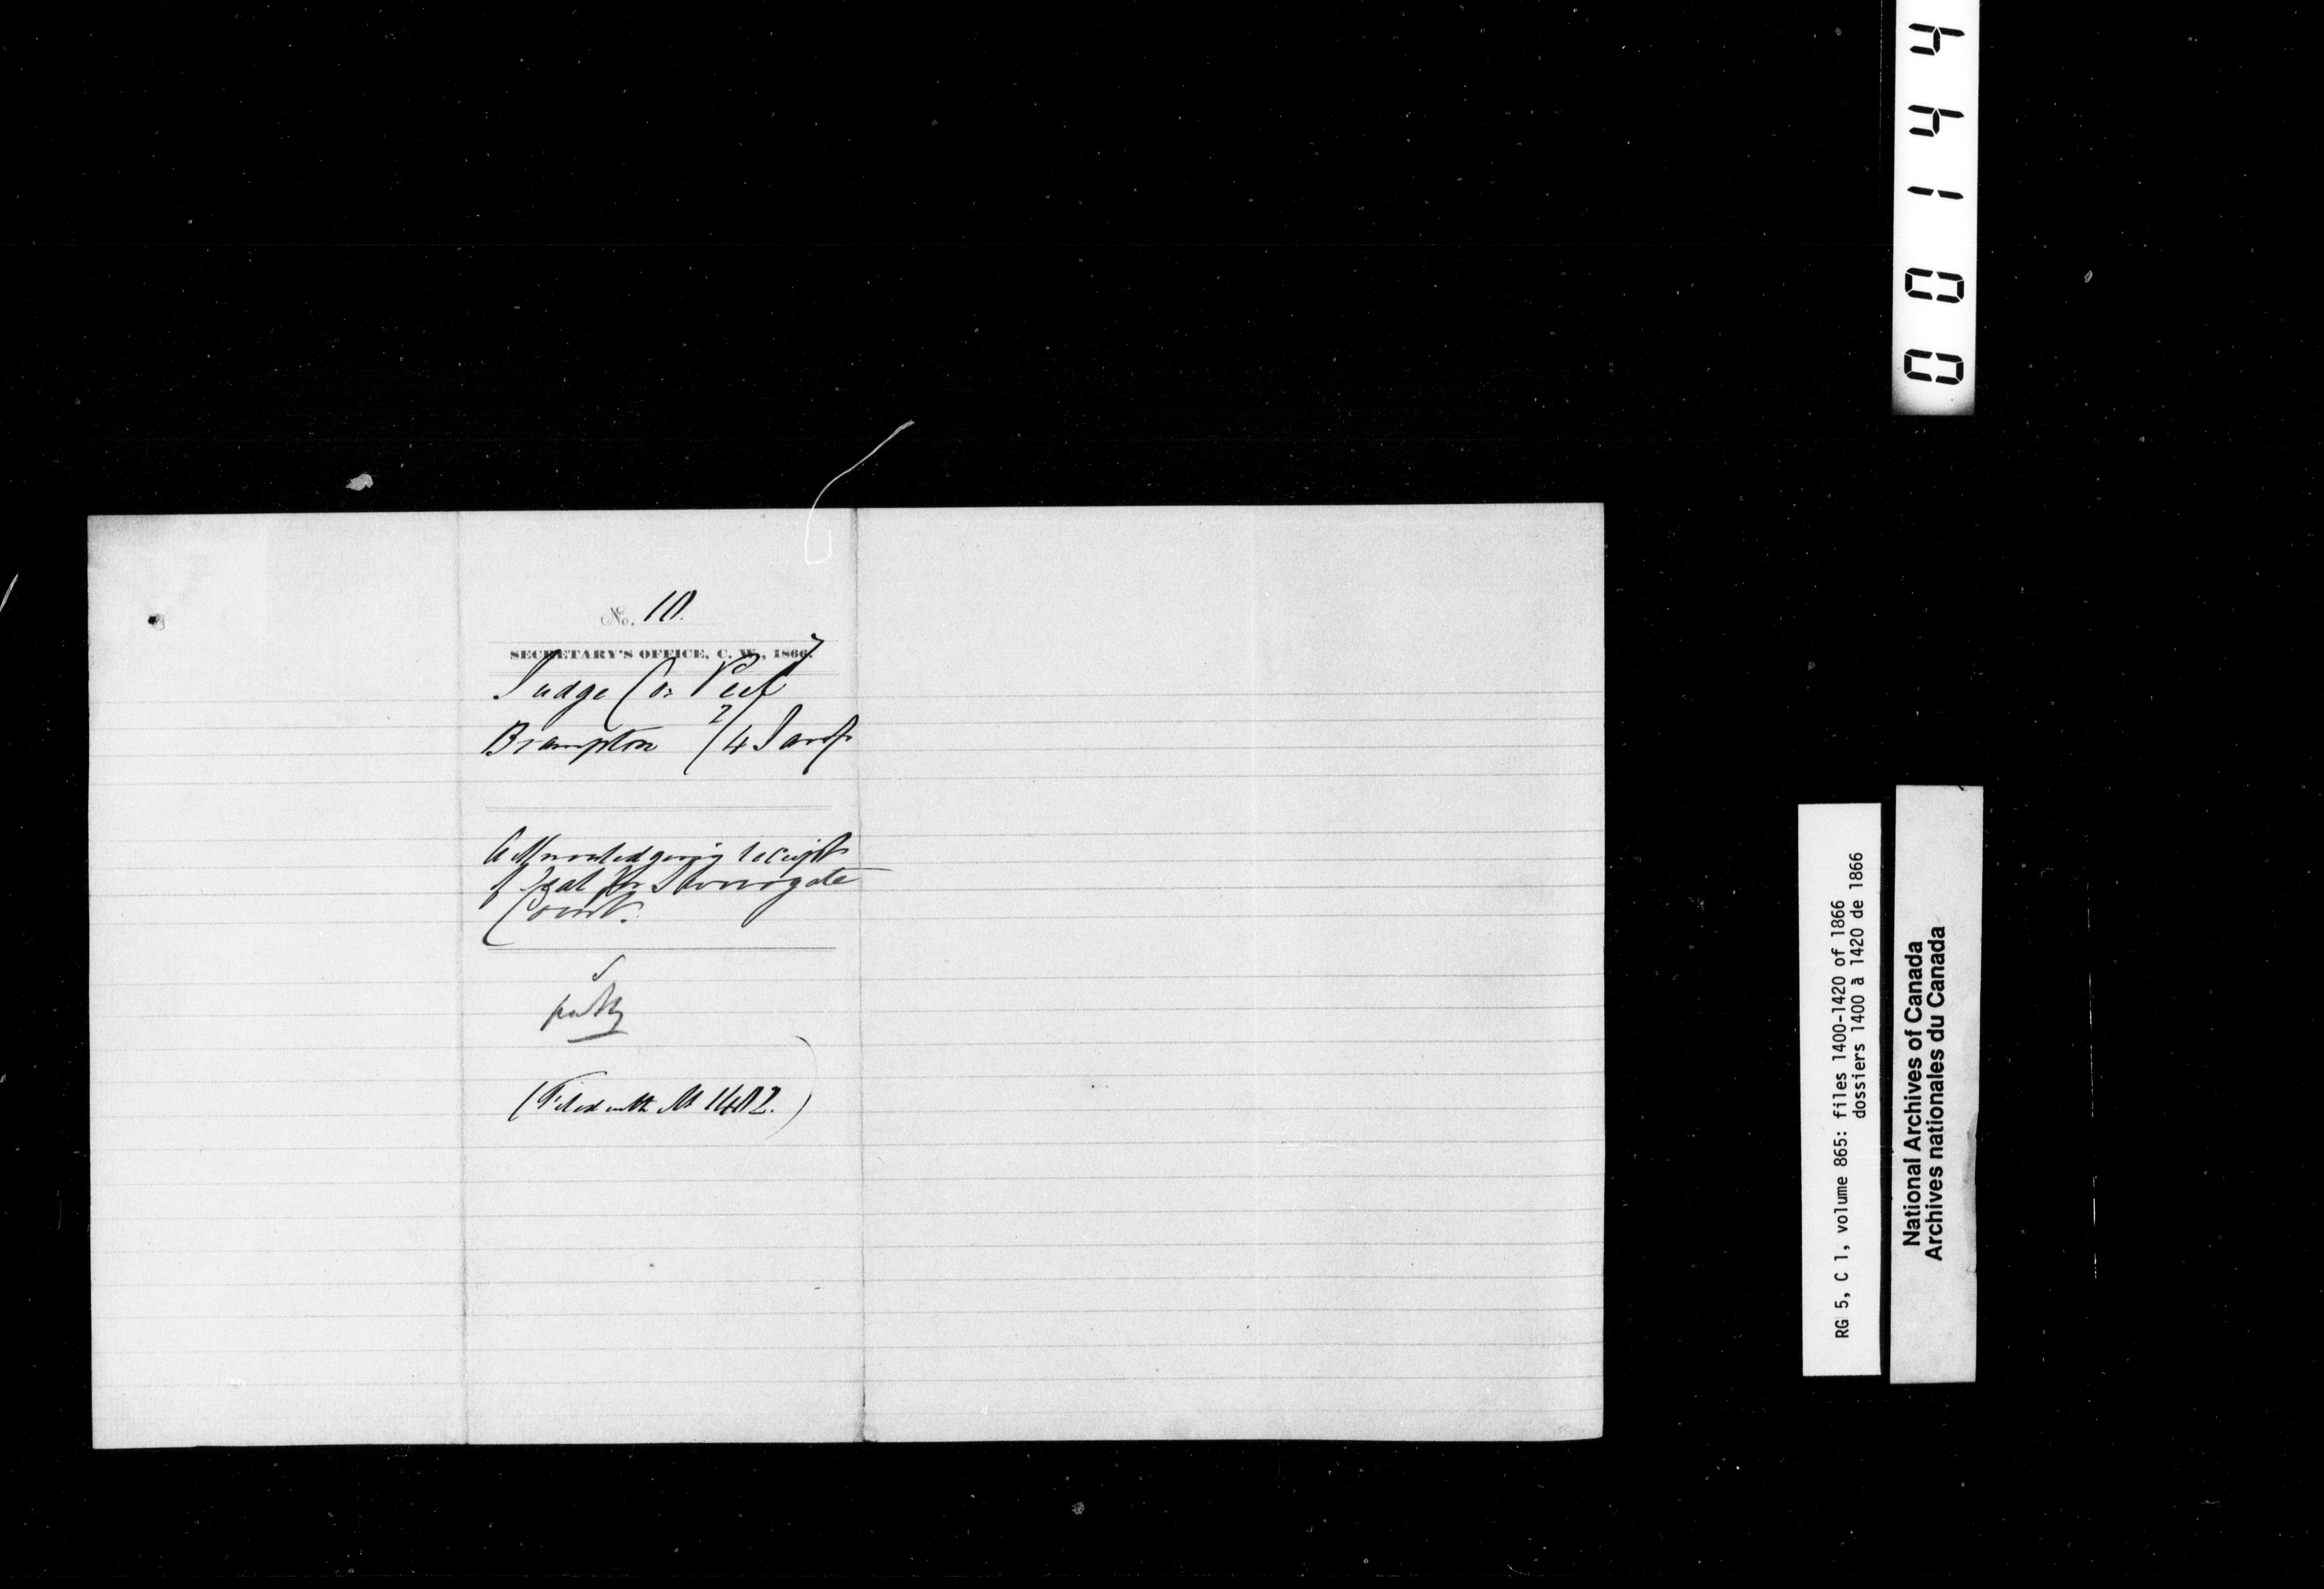 No. 10.
SECRETARY'S OFFICE, C. W., 1867.
Judge Co: Peel
Brampton 2/4 Jany
Acknowledging receipt
of Seal for Surrogate
Court.
(Filed with No 1402.)
00144
RG 5, C 1, volume 865: files 1400-1420 of 1866
dossiers 1400 à 1420 de 1866
National Archives of Canada
Archives nationales du Canada